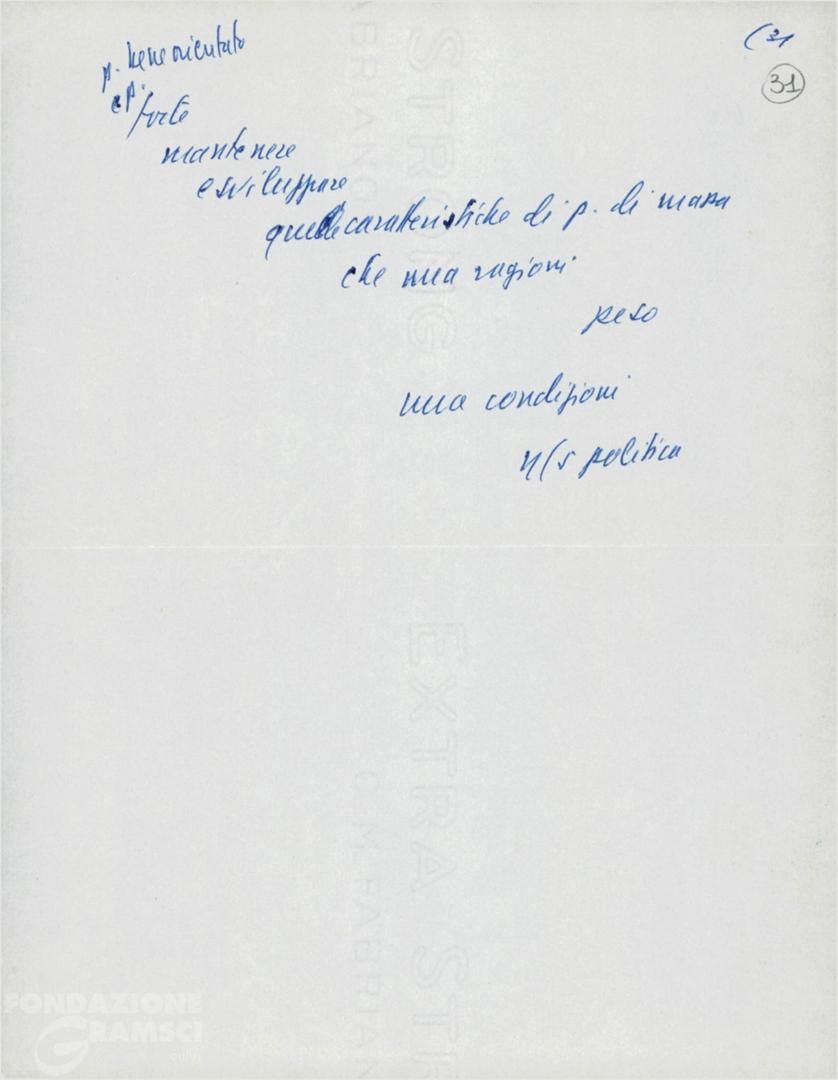 (31
31
p. bene orientato
e p.
forte
mantenere
e sviluppare
quelle caratteristiche di p. di massa
che una ragioni
peso
una condizioni
n/s politica
EXTRA STRONG
C.M. FABRIANO
FONDAZIONE
GRAMSCI